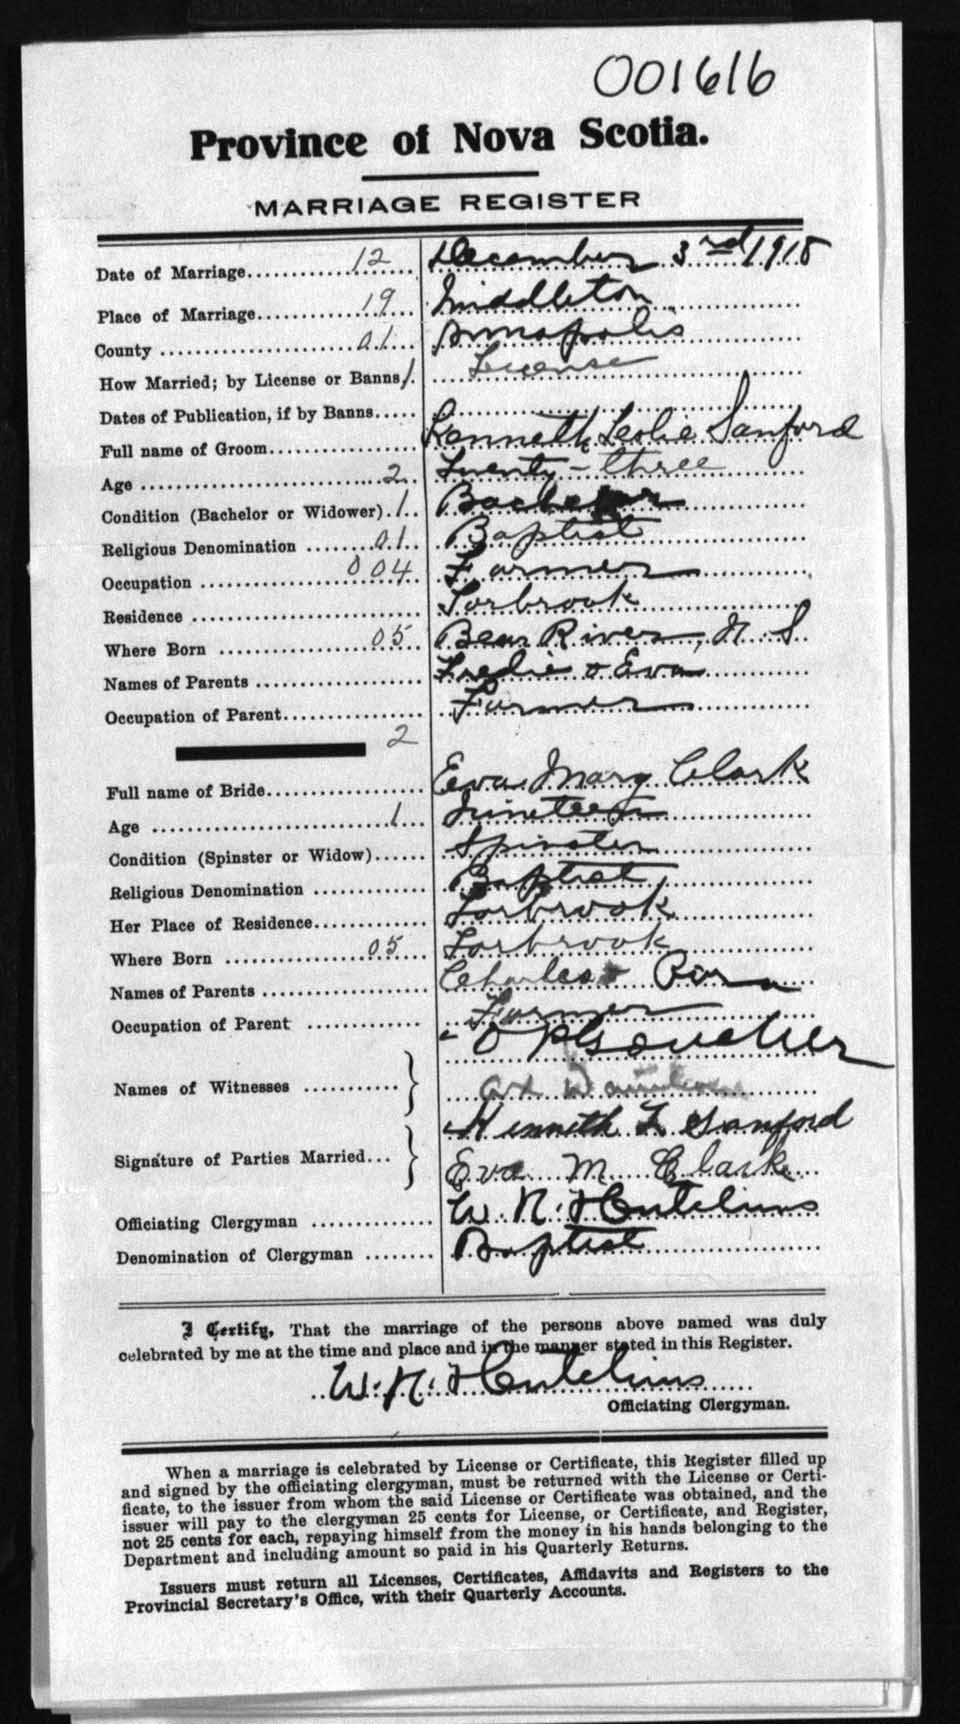 001616
Province of Nova Scotia.
MARRIAGE REGISTER
Date of Marriage 12 December 3rd 1918
Place of Marriage 19 Middleton
County 01 Annapolis
How Married; by License or Banns 1. License
Dates of Publication, if by Banns
Full name of Groom Kenneth Leslie Sanford
Age 2 Twenty-three
Condition (Bachelor or Widower) 1 Bachelor
Religious Denomination 01 Baptist
Occupation 004 Farmer
Residence Torbrook
Where Born 05 Bear River, N. S.
Names of Parents Fredie & Eva
Occupation of Parent Farmer
2
Full name of Bride Eva Mary Clark
Age 1 Nineteen
Condition (Spinster or Widow) Spinster
Religious Denomination Baptist
Her Place of Residence Torbrook
Where Born 05 Torbrook
Names of Parents Charles &
Occupation of Parent Farmer
O P Goucher
Names of Witnesses
Kenneth L Sanford
Signature of Parties Married
Eva M. Clark
Officiating Clergyman W. N. Hutchins
Denomination of Clergyman Baptist
I Certify, That the marriage of the persons above named was duly
celebrated by me at the time and place and in the manner stated in this Register.
W. N. Hutchins
Officiating Clergyman.
When a marriage is celebrated by License or Certificate, this Register filled up
and signed by the officiating clergyman, must be returned with the License or Certi-
ficate, to the issuer from whom the said License or Certificate was obtained, and the
issuer will pay to the clergyman 25 cents for License, or Certificate, and Register,
not 25 cents for each, repaying himself from the money in his hands belonging to the
Department and including amount so paid in his Quarterly Returns.
Issuers must return all Licenses, Certificates, Affidavits and Registers to the
Provincial Secretary's Office, with their Quarterly Accounts.